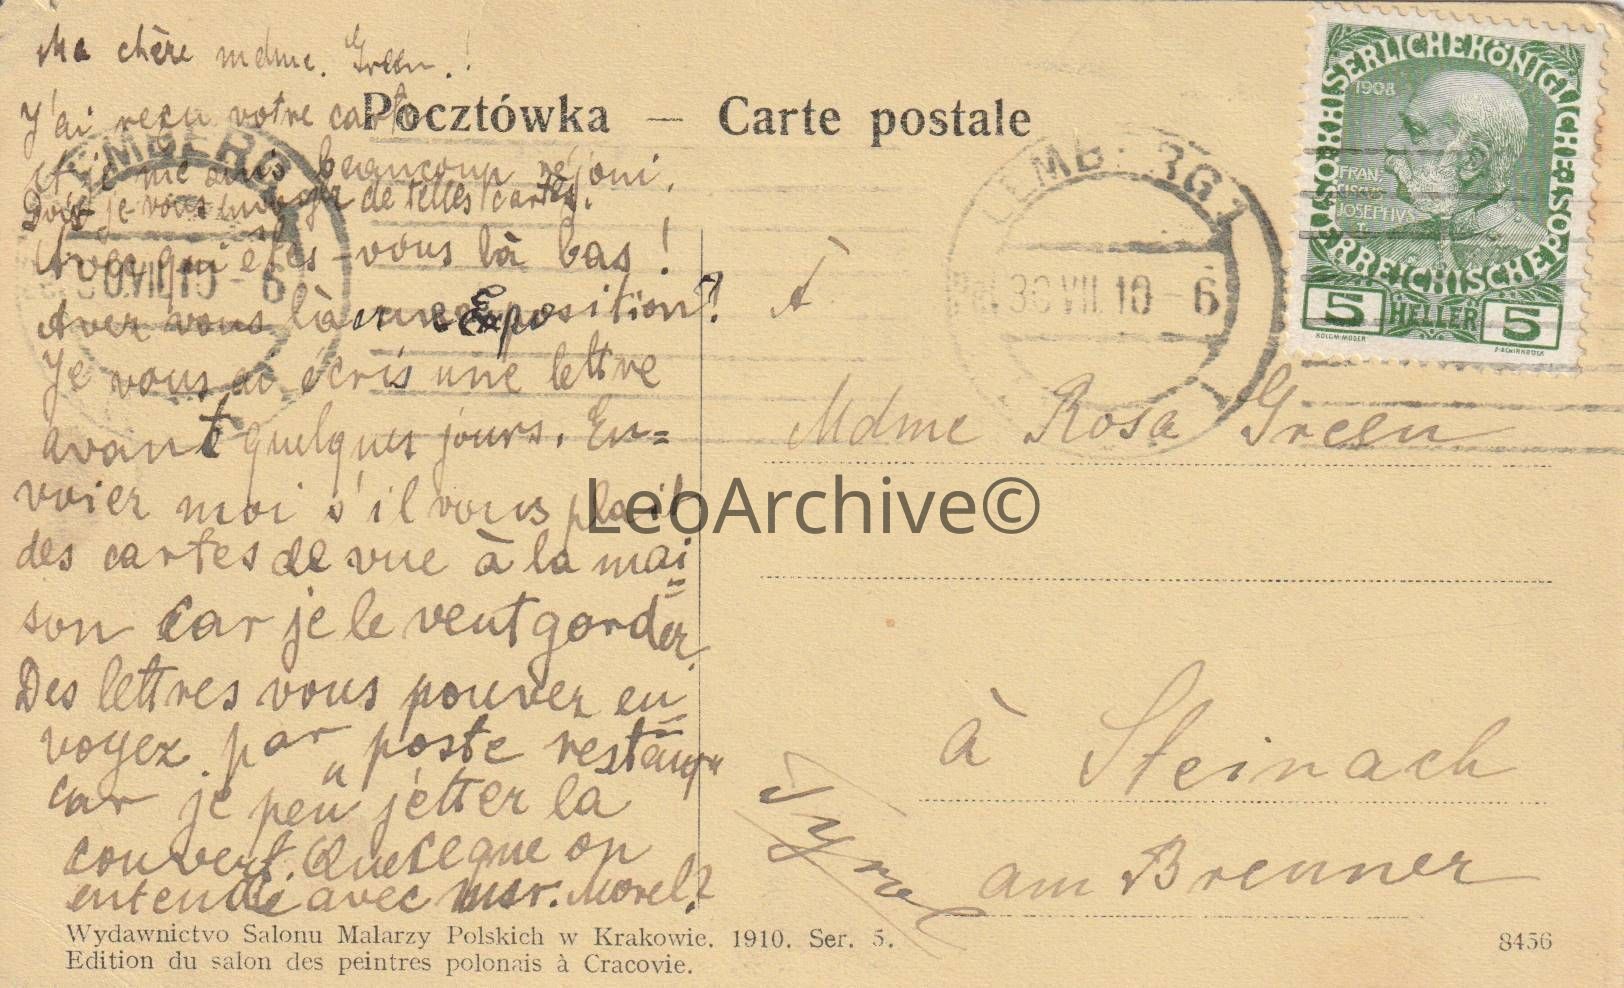 Ma chère mdme. Green.!
J'ai reçu votre carte
et je me suis beaucoup réjoui.
Dois je vous de telles cartes.
Avec qui êtes-vous là bas!
Avez vous là une Exposition?!
Je vous ai écris une lettre
avant quelques jours. En=
voier moi s'il vous plait
des cartes de vue à la mai=
son car je le veut gorder.
Des lettres vous pouvez en=
voyez par "poste restante"
car je peu jetter la
couvert. Quesceque on
entende avec msr. Morel?
Pocztówka — Carte postale
LEMBERG
30 VII 10 - 6
LEMBERG 1
30 VII. 10 - 6
KAISERLICHE KÖNIGLICHE ÖSTERREICHISCHE POST
1908
FRAN
CISCUS
JOSEPHVS
I
5 HELLER 5
KOLOM. MOSER
F. SCHIRNBÖCK
A
Mdme Rosa Green
à Steinach
am Brenner
Tyrol
LeoArchive©
Wydawnictwo Salonu Malarzy Polskich w Krakowie. 1910. Ser. 5.
Edition du salon des peintres polonais à Cracovie.
8456